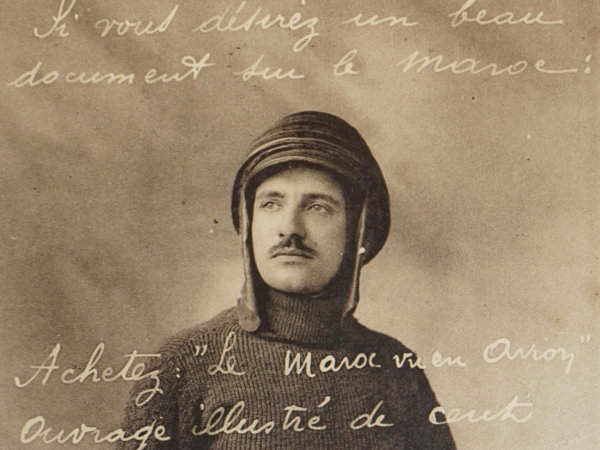 Si vous désirez un beau
document sur le Maroc :
Achetez : "Le Maroc vu en Avion"
Ouvrage illustré de cent